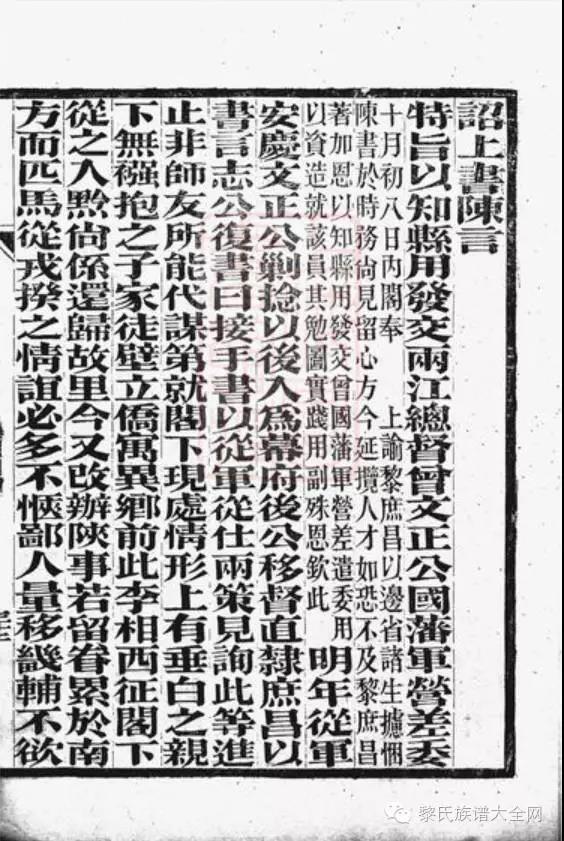 詔上書陳言
特旨以知縣用發交兩江總督曾文正公國藩軍營差委
十月初八日內閣奉 上諭黎庶昌以邊省諸生攄悃
陳書於時務尙見留心方今延攬人才如恐不及黎庶昌
著加恩以知縣用發交曾國藩軍營差遣委用
以資造就該員其勉圖實踐用副殊恩欽此 明年從軍
安慶文正公剿捻以後入爲幕府後公移督直隸庶昌以
書言志公復書曰接手書以從軍從仕兩策見詢此等進
止非師友所能代謀第就閣下現處情形上有垂白之親
下無襁抱之子家徒壁立僑寓異鄉前此李相西征閣下
從之入黔尙係還歸故里今又改辦陝事若留眷累於南
方而匹馬從戎揆之情誼必多不愜鄙人量移畿輔不欲
黎氏族谱大全网